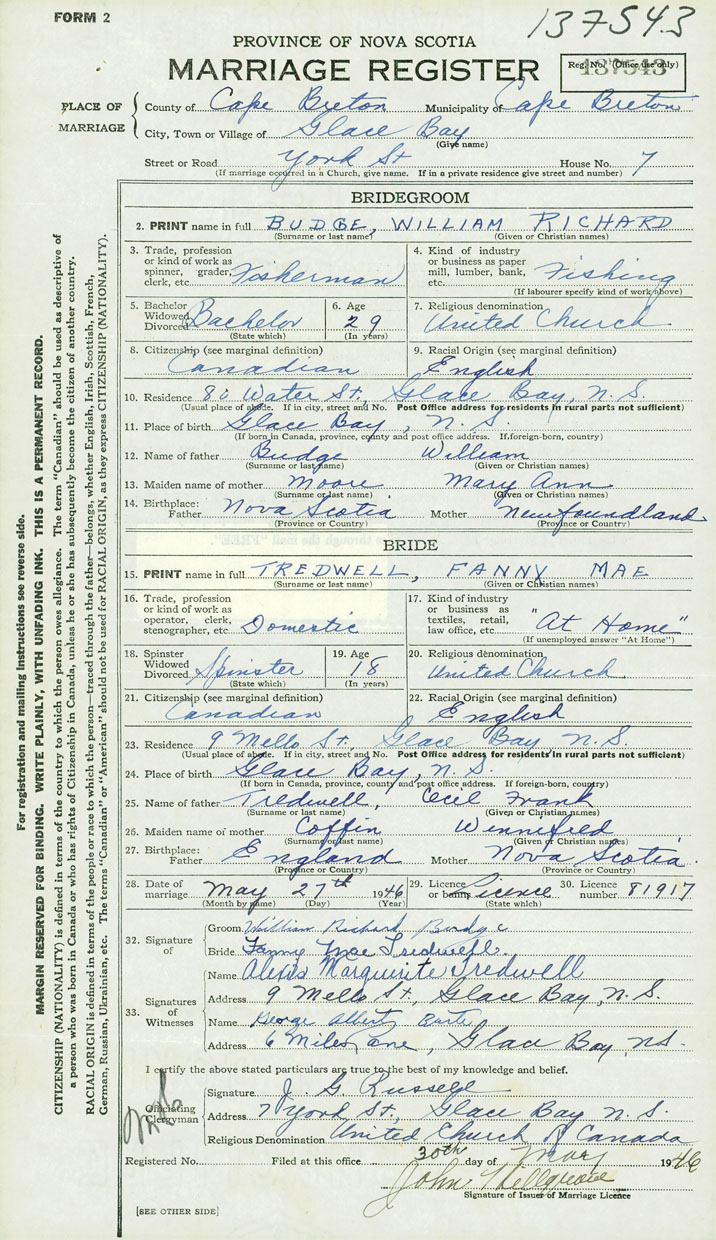 FORM 2
137543
PROVINCE OF NOVA SCOTIA
MARRIAGE REGISTER
Reg. No. (Office use only)
137543
PLACE OF MARRIAGE
County of Cape Breton Municipality of Cape Breton
City, Town or Village of Glace Bay
(Give name)
Street or Road York St House No. 7
(If marriage occurred in a Church, give name. If in a private residence give street and number)
BRIDEGROOM
2. PRINT name in full BUDGE, WILLIAM RICHARD
(Surname or last name) (Given or Christian names)
3. Trade, profession or kind of work as spinner, grader, clerk, etc. Fisherman
4. Kind of industry or business as paper mill, lumber, bank, etc. Fishing
(If labourer specify kind of work above)
5. Bachelor Widowed Divorced Bachelor
(State which)
6. Age 29
(In years)
7. Religious denomination United Church
8. Citizenship (see marginal definition) Canadian
9. Racial Origin (see marginal definition) English
10. Residence 80 Water St, Glace Bay, N.S.
(Usual place of abode. If in city, street and No. Post Office address for residents in rural parts not sufficient)
11. Place of birth Glace Bay, N.S.
(If born in Canada, province, county and post office address. If foreign-born, country)
12. Name of father Budge William
(Surname or last name) (Given or Christian names)
13. Maiden name of mother Moore Mary Ann
(Surname or last name) (Given or Christian names)
14. Birthplace: Father Nova Scotia Mother Newfoundland
(Province or Country) (Province or Country)
BRIDE
15. PRINT name in full TREDWELL, FANNY MAE
(Surname or last name) (Given or Christian names)
16. Trade, profession or kind of work as operator, clerk, stenographer, etc Domestic
17. Kind of industry or business as textiles, retail, law office, etc. "At Home"
(If unemployed answer "At Home")
18. Spinster Widowed Divorced Spinster
(State which)
19. Age 18
(In years)
20. Religious denomination United Church
21. Citizenship (see marginal definition) Canadian
22. Racial Origin (see marginal definition) English
23. Residence 9 Mello St, Glace Bay N.S
(Usual place of abode. If in city, street and No. Post Office address for residents in rural parts not sufficient)
24. Place of birth Glace Bay, N.S.
(If born in Canada, province, county and post office address. If foreign-born, country)
25. Name of father Tredwell, Cecil Frank
(Surname or last name) (Given or Christian names)
26. Maiden name of mother Coffin Winnifred
(Surname or last name) (Given or Christian names)
27. Birthplace: Father England Mother Nova Scotia
(Province or Country) (Province or Country)
28. Date of marriage May 27th 1946
(Month by name) (Day) (Year)
29. Licence or banns Licence
(State which)
30. Licence number 81917
32. Signature of
Groom William Richard Budge
Bride Fanny Mae Tredwell
33. Signatures of Witnesses
Name Alexis Marguirite Tredwell
Address 9 Mello St, Glace Bay, N.S.
Name George Albert
Address 6 Miles Lane, Glace Bay, N.S.
I certify the above stated particulars are true to the best of my knowledge and belief.
Officiating Clergyman
Signature J. G Russell
Address 7 York St, Glace Bay N.S.
Religious Denomination United Church of Canada
Registered No. Filed at this office 30th day of May 1946
John
Signature of Issuer of Marriage Licence
[SEE OTHER SIDE]
For registration and mailing instructions see reverse side.
MARGIN RESERVED FOR BINDING. WRITE PLAINLY, WITH UNFADING INK. THIS IS A PERMANENT RECORD.
CITIZENSHIP (NATIONALITY) is defined in terms of the country to which the person owes allegiance. The term "Canadian" should be used as descriptive of
a person who was born in Canada or who has rights of Citizenship in Canada, unless he or she has subsequently become the citizen of another country.
RACIAL ORIGIN is defined in terms of the people or race to which the person—traced through the father—belongs, whether English, Irish, Scottish, French,
German, Russian, Ukrainian, etc. The terms "Canadian" or "American" should not be used for RACIAL ORIGIN, as they express CITIZENSHIP (NATIONALITY).